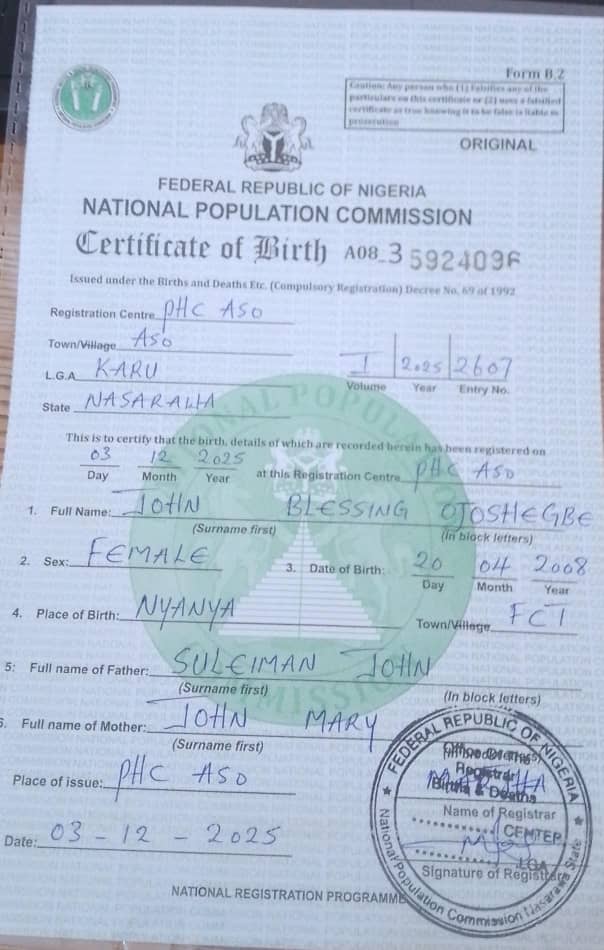 Form B.2
Caution: Any person who (1) Falsifies any of the
particulars on this certificate or (2) uses a falsified
certificate as true knowing it to be false is liable to
prosecution
ORIGINAL
FEDERAL REPUBLIC OF NIGERIA
NATIONAL POPULATION COMMISSION
Certificate of Birth A08_3 5924096
Issued under the Births and Deaths Etc. (Compulsory Registration) Decree No. 69 of 1992
Registration Centre PHC ASO
Town/Village ASO
L.G.A KARU
I 2025 2607
Volume Year Entry No.
State NASARAWA
This is to certify that the birth, details of which are recorded herein has been registered on
03 12 2025 at this Registration Centre PHC ASO
Day Month Year
1. Full Name: JOHN BLESSING OJOSHEGBE
(Surname first) (In block letters)
2. Sex: FEMALE 3. Date of Birth: 20 04 2008
Day Month Year
4. Place of Birth: NYANYA Town/Village FCT
5: Full name of Father: SULEIMAN JOHN
(Surname first) (In block letters)
6. Full name of Mother: JOHN MARY
(Surname first)
Place of issue: PHC ASO
Name of Registrar
Date: 03-12-2025
Signature of Registrar
NATIONAL REGISTRATION PROGRAMME
FEDERAL REPUBLIC OF NIGERIA
Office Of The
Registrar
Births & Deaths
CENTER
LGA
National Population Commission Nasarawa State